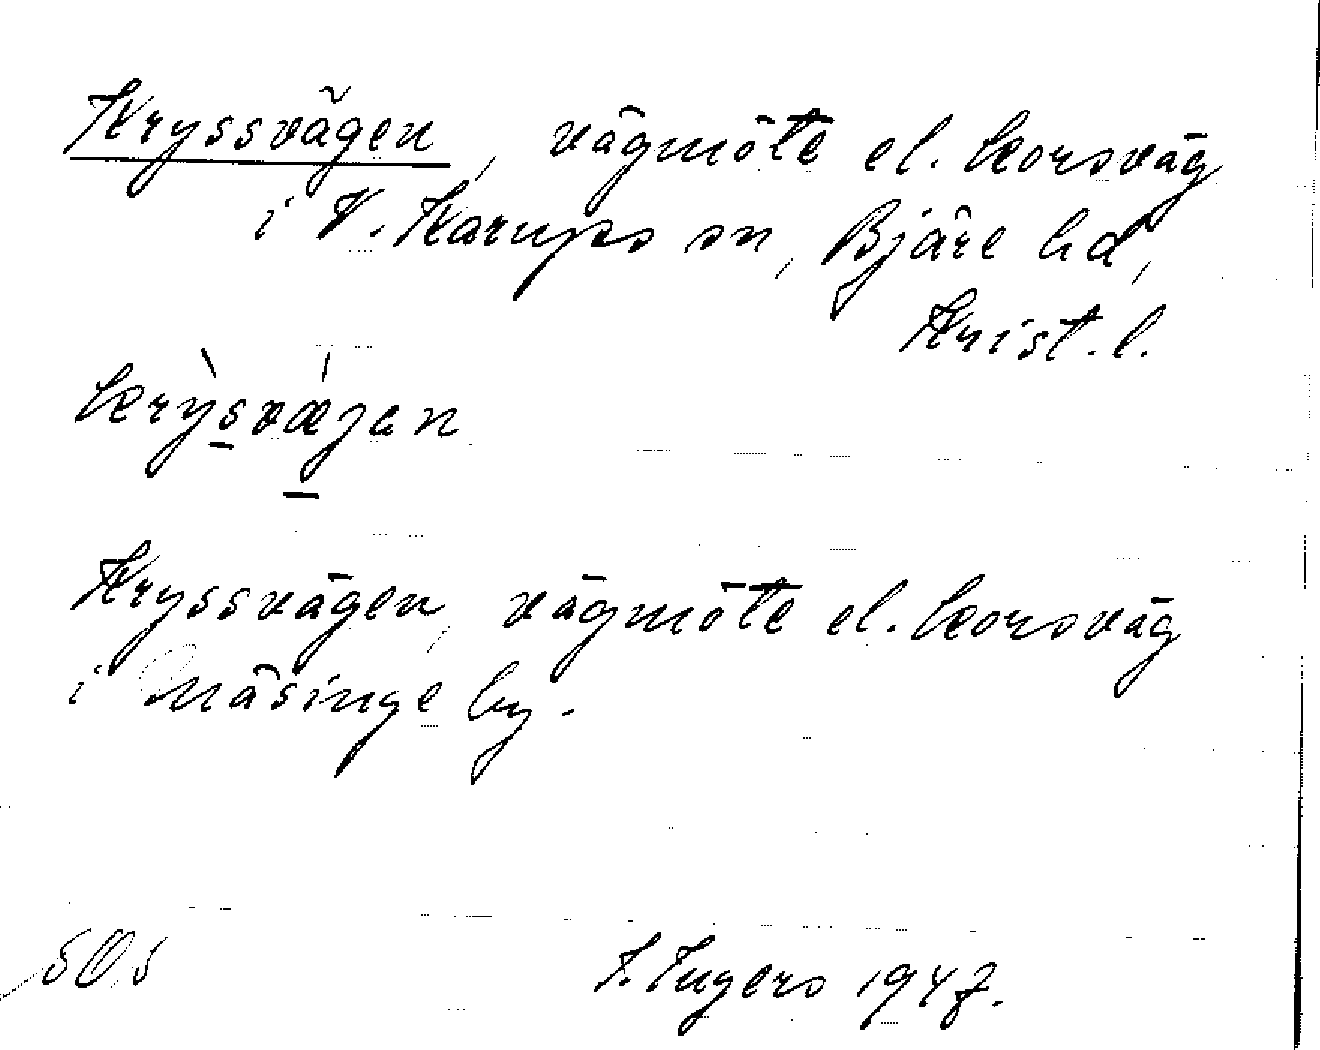 Kryssvägen, vägmöte el. korsväg
i V. Karups sn, Bjäre hd,
Krist. l.
krỳsvǽjan
Kryssvägen, vägmöte el. korsväg
i Mäsinge by.
I. Ingers 1947.